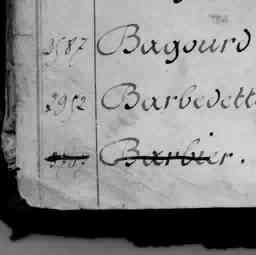 2587 Bagourd
2952 Barbedett
Barbier.